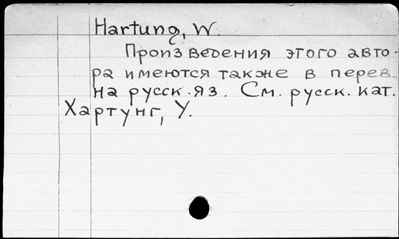 Hartung, W.
Произведения этого авто-
ра имеются также в перев.
на русск. яз. См. русск. кат.
Хартунг, У.